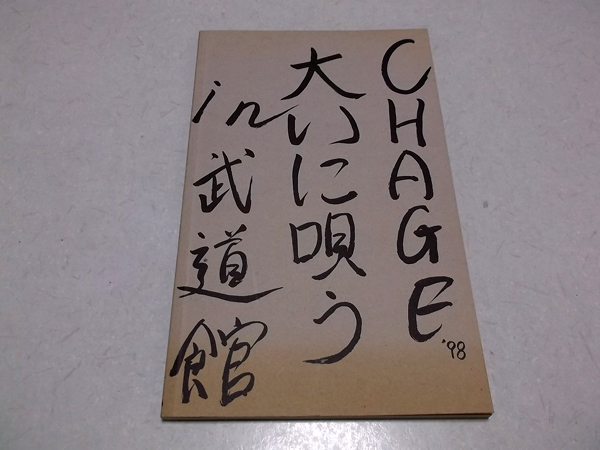 CHAGE
'98
大いに唄う
in武道館